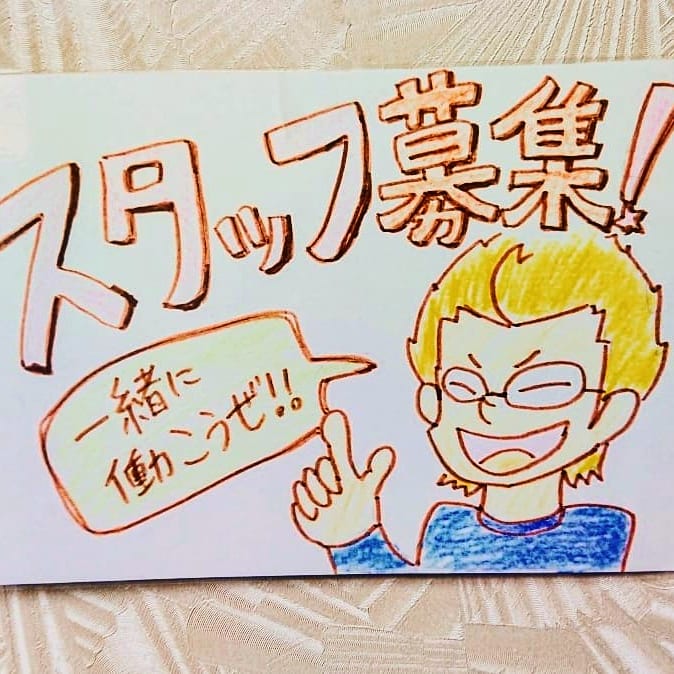 スタッフ募集!
一緒に
働こうぜ!!